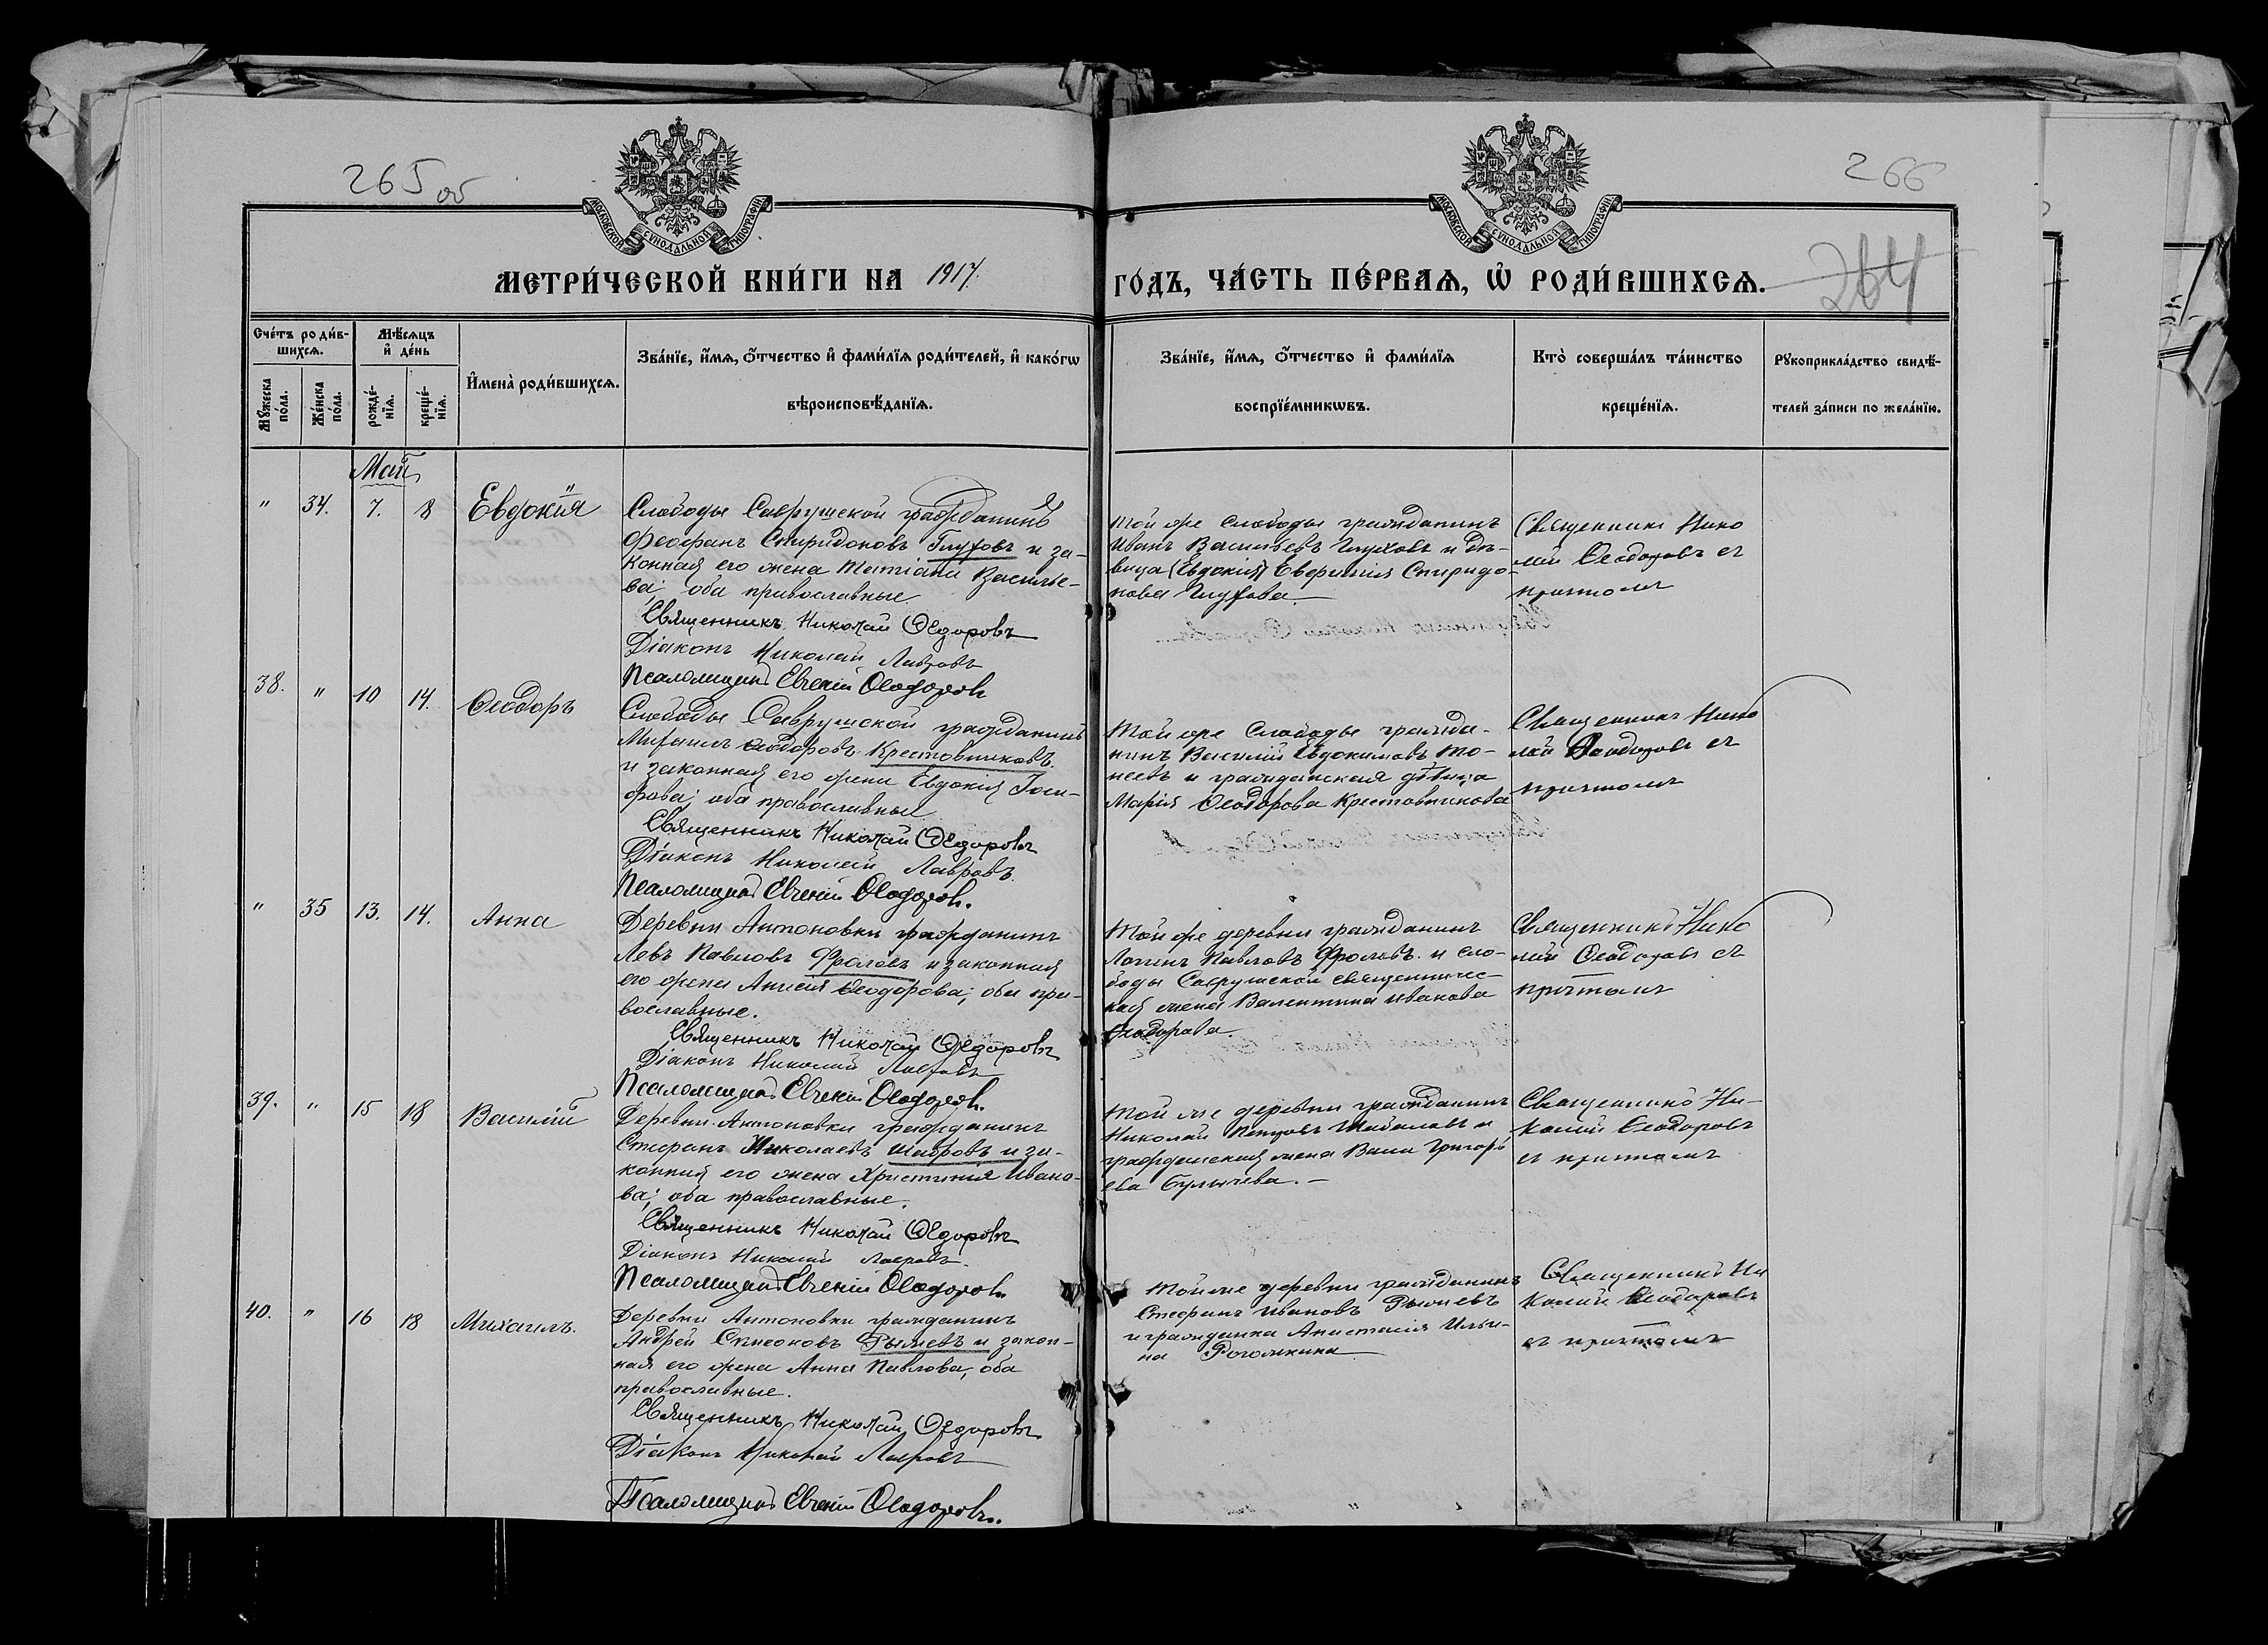 265 об
266
МОСКОВСКОЙ СѴНОДАЛЬНОЙ ТИПОГРАФІИ
МОСКОВСКОЙ СѴНОДАЛЬНОЙ ТИПОГРАФІИ
МЕТРИ́ЧЕСКОЙ КНИ́ГИ НА 1917.
ГО́ДЪ, ЧА́СТЬ ПЕ́РВАѦ, Ѡ҆ РОДИ́ВШИХСѦ.
264
Сче́тъ роди́в-
шихсѧ.
Мѣ́сѧцъ
и҆ де́нь
И҆мена̀ роди́вшихсѧ.
Зва́нїе, и҆́мѧ, ѻ҆́тчество и҆ фами́лїѧ роди́телей, и҆ како́гѡ
вѣроисповѣ́данїѧ.
Зва́нїе, и҆́мѧ, ѻ҆́тчество и҆ фами́лїѧ
воспрїе́мникѡвъ.
Кто̀ соверша́лъ та́инство
креще́нїѧ.
Рꙋкоприкла́дство свидѣ́-
телей за́писи по жела́нїю.
Мꙋ́жеска
по́ла.
Же́нска
по́ла.
рожде́-
нїѧ.
креще́-
нїѧ.
Май
" 34. 7. 8 Евдокія
Слободы Саврушской гражданинъ
Феофанъ Спиридоновъ Глуховъ и за-
конная его жена Татіана Василье-
ва, оба православные.
Священникъ Николай Ѳедоровъ
Діаконъ Николай Лавровъ
Псаломщикъ Евгеній Ѳеодоровъ
Той же слободы гражданинъ
Иванъ Васильевъ Глуховъ и дѣ-
вица (Евдокія) Евфимія Спиридо-
нова Глухова.
Священникъ Нико
лай Ѳеодоровъ съ
причтомъ
38. " 10 14. Ѳеодоръ
Слободы Саврушской гражданинъ
Михаилъ Ѳеодоровъ Крестовниковъ
и законная его жена Евдокія
оба православные
Священникъ Николай Ѳедоровъ
Діаконъ Николай Лавровъ.
Псаломщикъ Евгеній Ѳеодоровъ.
Той же слободы гражда-
нинъ Василій Евдокимовъ
и гражданская дѣвица
Марія Ѳеодорова Крестовникова
Священникъ Нико
лай Ѳеодоровъ съ
причтомъ
" 35 13. 14. Анна
Деревни Антоновки гражданинъ
Левъ Павловъ Фроловъ и законная
его жена Анисія Ѳеодорова; оба пра-
вославные.
Священникъ Николай Ѳедоровъ
Діаконъ Николай Лавровъ
Псаломщикъ Евгеній Ѳеодоровъ.
Той же деревни гражданинъ
Павловъ Фроловъ и сло-
боды Саврушской священниче-
кая жена Валентина Иванова
Ѳеодорова.
Священникъ Нико
лай Ѳеодоровъ съ
причтомъ
39. " 15 18 Василій
Деревни Антоновки гражданинъ
Стефанъ Николаевъ Шавровъ и за-
конная его жена Христинія Ивано-
ва; оба православные.
Священникъ Николай Ѳедоровъ
Діаконъ Николай Лавровъ.
Псаломщикъ Евгеній Ѳеодоровъ.
Той же деревни гражданинъ
Николай Петровъ и
гражданская жена Григорь
ева Булычева.
Священникъ Ни-
колай Ѳеодоровъ
съ причтомъ
40. " 16 18 Михаилъ.
Деревни Антоновки гражданинъ
Андрей Симеоновъ и закон-
ная его жена Анна Павлова, оба
православные.
Священникъ Николай Ѳедоровъ
Діаконъ Николай Лавровъ
Псаломщикъ Евгеній Ѳеодоровъ.
Той же деревни гражданинъ
Стефанъ Ивановъ
и гражданка Анастасія Ильи-
на Рогожкина
Священникъ Ни
колай Ѳеодоровъ
съ причтомъ